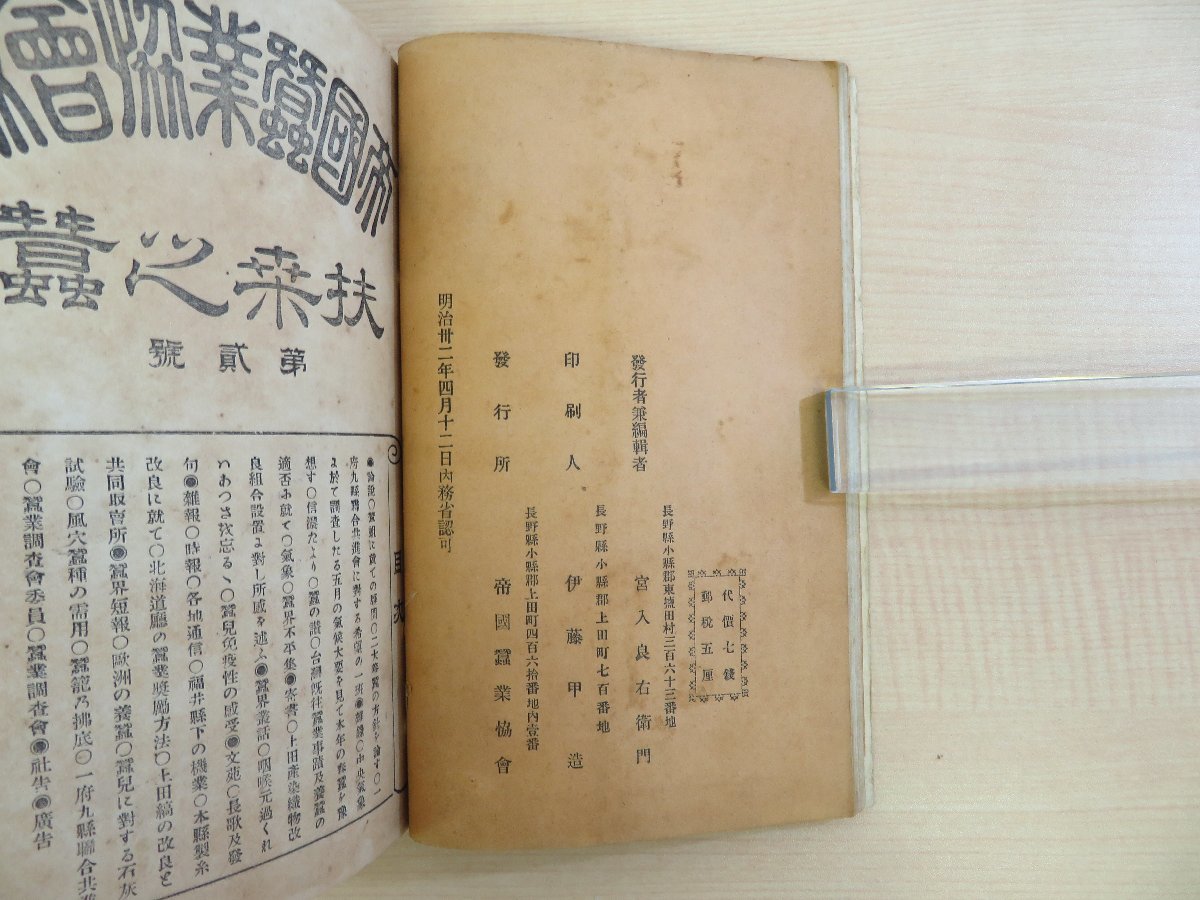 代價七錢
郵税五厘
長野縣小縣郡東鹽田村三百六十三番地
發行者兼編輯者
宮入良右衛門
長野縣小縣郡上田町七百番地
印刷人
伊藤甲造
長野縣小縣郡上田町四百六拾番地內壹番
發行所
帝國蠶業協會
明治卅二年四月十二日內務省認可
帝國蠶業協會
扶桒之蠶
第貳號
目次
府九縣聯合共進會に對する希望の一班●雜錄○中央氣象
に於て調査したる五月の氣候大要を見て本年の春蠶を豫
想す○信濃たより○蠶の譜○台灣既往蠶業事蹟及養蠶の
適否に就て○氣象○蠶界不平集●寄書○上田產染織物改
良組合設置に對し所感を述ふ●蠶界叢話○咽喉元過くれ
はあつさを忘るゝ○蠶兒免疫性の感受●文苑○長歌及發
句●雜報○時報○各地通信○福井縣下の機業○本縣製糸
改良に就て○北海道廳の蠶業奬勵方法○上田縞の改良と
共同取賣所●蠶界短報○歐洲の養蠶○蠶兒に對する石灰
試驗○風穴蠶種の需用○蠶籠乃拂底○一府九縣聯合共進
會○蠶業調査會委員○蠶業調査會●社告●廣告